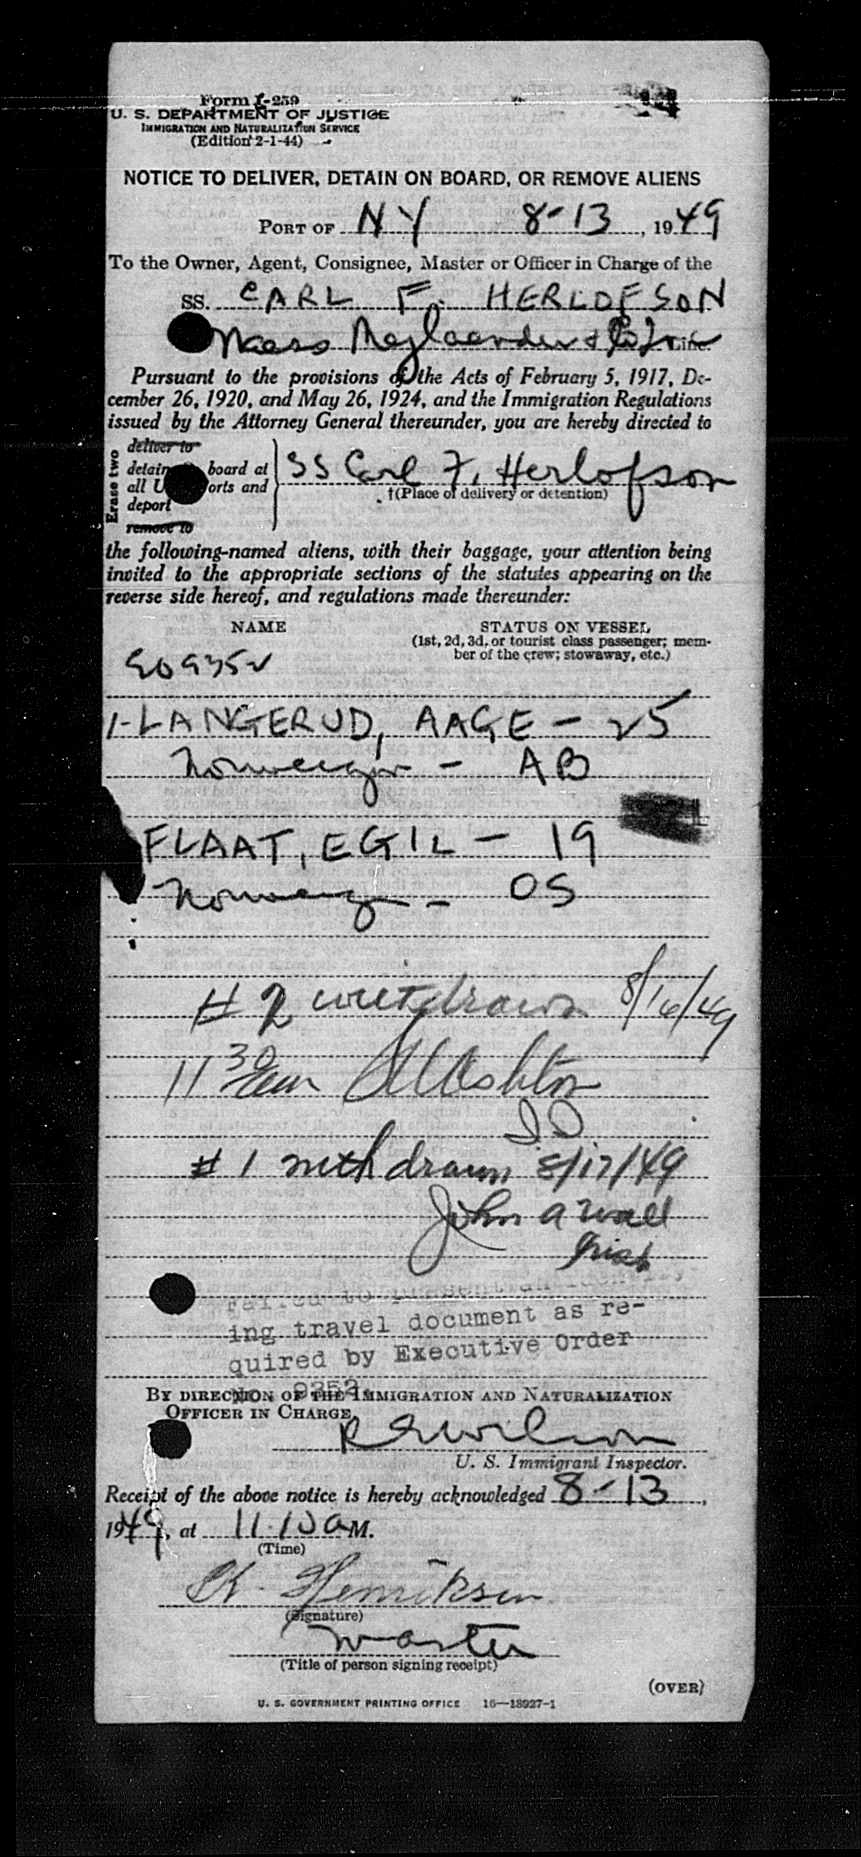 Form I-259
U. S. DEPARTMENT OF JUSTICE
IMMIGRATION AND NATURALIZATION SERVICE
(Edition 2-1-44)
NOTICE TO DELIVER, DETAIN ON BOARD, OR REMOVE ALIENS
PORT OF NY 8-13, 1949
To the Owner, Agent, Consignee, Master or Officer in Charge of the
SS. CARL F. HERLOFSON
Inc.
Pursuant to the provisions of the Acts of February 5, 1917, De-
cember 26, 1920, and May 26, 1924, and the Immigration Regulations
issued by the Attorney General thereunder, you are hereby directed to
Erase two
deliver to
detain board at
all U orts and
deport
remove to
SS Carl F. Herlofson
†(Place of delivery or detention)
the following-named aliens, with their baggage, your attention being
invited to the appropriate sections of the statutes appearing on the
reverse side hereof, and regulations made thereunder:
NAME STATUS ON VESSEL
(1st, 2d, 3d, or tourist class passenger; mem-
ber of the crew; stowaway, etc.)
1-LANGERUD, AAGE - 25
Norwegian - AB
FLAAT, EGIL - 19
Norweg - OS
# 2 withdrawn 8/16/49
11 30 am Ashton
# 1 withdrawn 8/17/49
John A Wall
Failed to present an identify-
ing travel document as re-
quired by Executive Order
No. 9352.
BY DIRECTION OF THE IMMIGRATION AND NATURALIZATION
OFFICER IN CHARGE
R E Wilson
U. S. Immigrant Inspector.
Receipt of the above notice is hereby acknowledged 8-13,
1949, at 11:10 a M.
(Time)
Henriksen
(Signature)
Master
(Title of person signing receipt)
(OVER)
U. S. GOVERNMENT PRINTING OFFICE 16—18927-1